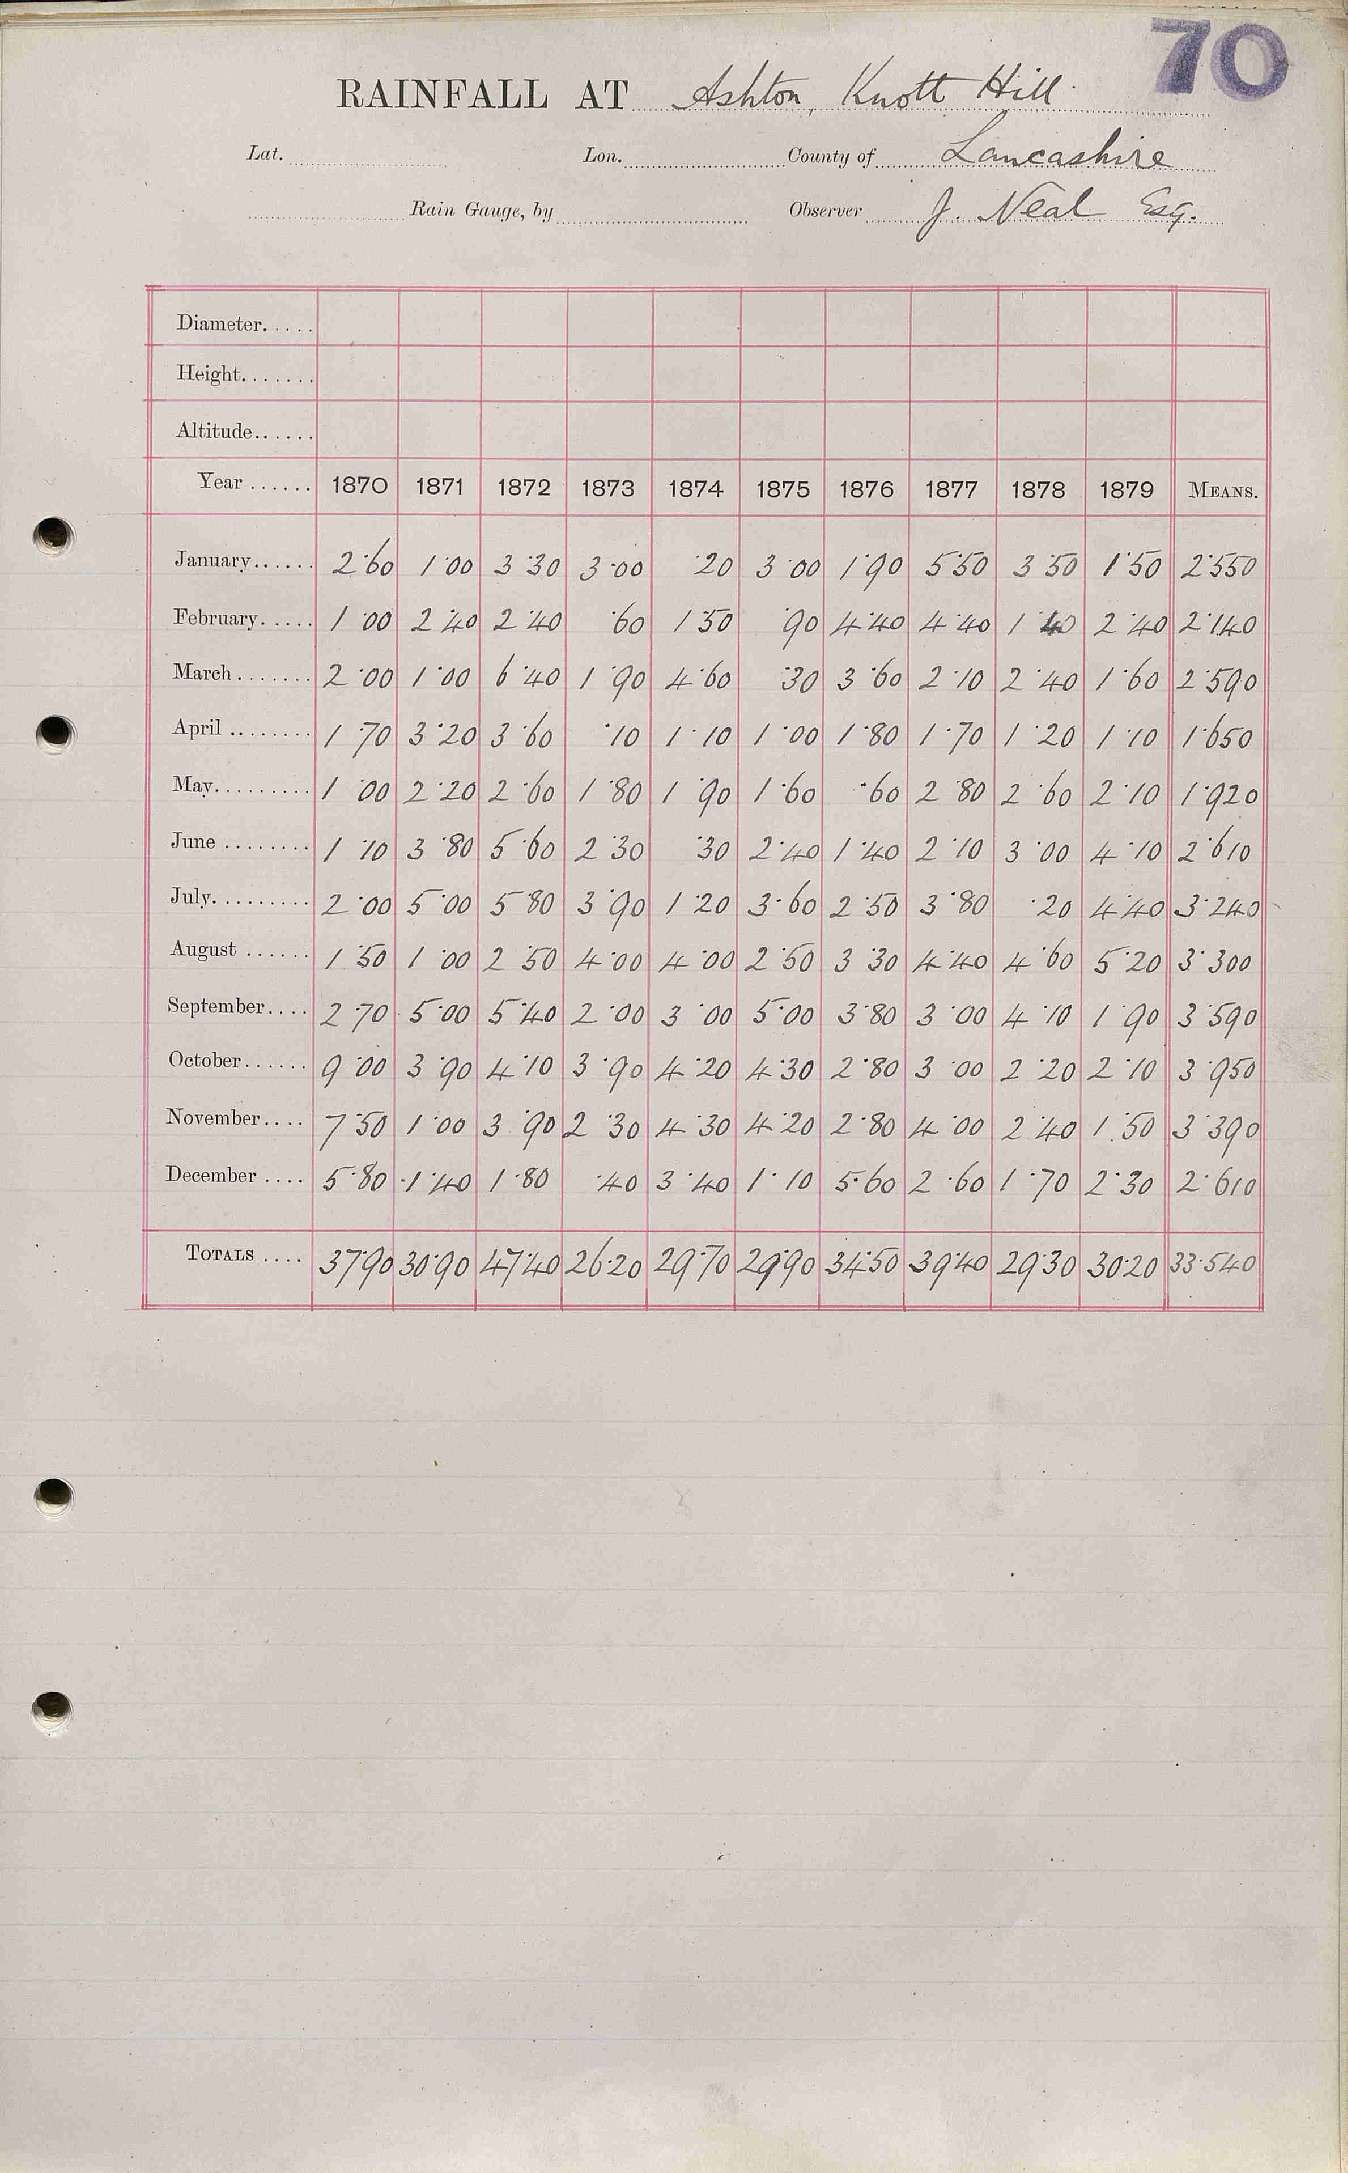 70
RAINFALL AT Ashton, Knott Hill.
Lat. Lon. County of Lancashire
Rain Gauge, by Observer J. Neal Esq.
Diameter.....
Height.......
Altitude......
Year ...... 1870 1871 1872 1873 1874 1875 1876 1877 1878 1879 MEANS.
January...... 2·60 1·00 3·30 3·00 ·20 3·00 1·90 5·50 3·50 1·50 2·550
February..... 1·00 2·40 2·40 ·60 1·50 ·90 4·40 4·40 1·40 2·40 2·140
March ....... 2·00 1·00 6·40 1·90 4·60 ·30 3·60 2·10 2·40 1·60 2·590
April ........ 1·70 3·20 3·60 ·10 1·10 1·00 1·80 1·70 1·20 1·10 1·650
May......... 1·00 2·20 2·60 1·80 1·90 1·60 ·60 2·80 2·60 2·10 1·920
June ........ 1·10 3·80 5·60 2·30 ·30 2·40 1·40 2·10 3·00 4·10 2·610
July......... 2·00 5·00 5·80 3·90 1·20 3·60 2·50 3·80 ·20 4·40 3·240
August ...... 1·50 1·00 2·50 4·00 4·00 2·50 3·30 4·40 4·60 5·20 3·300
September.... 2·70 5·00 5·40 2·00 3·00 5·00 3·80 3·00 4·10 1·90 3·590
October...... 9·00 3·90 4·10 3·90 4·20 4·30 2·80 3·00 2·20 2·10 3·950
November.... 7·50 1·00 3·90 2·30 4·30 4·20 2·80 4·00 2·40 1·50 3·390
December .... 5·80 1·40 1·80 ·40 3·40 1·10 5·60 2·60 1·70 2·30 2·610
TOTALS .... 37·90 30·90 47·40 26·20 29·70 29·90 34·50 39·40 29·30 30·20 33·540